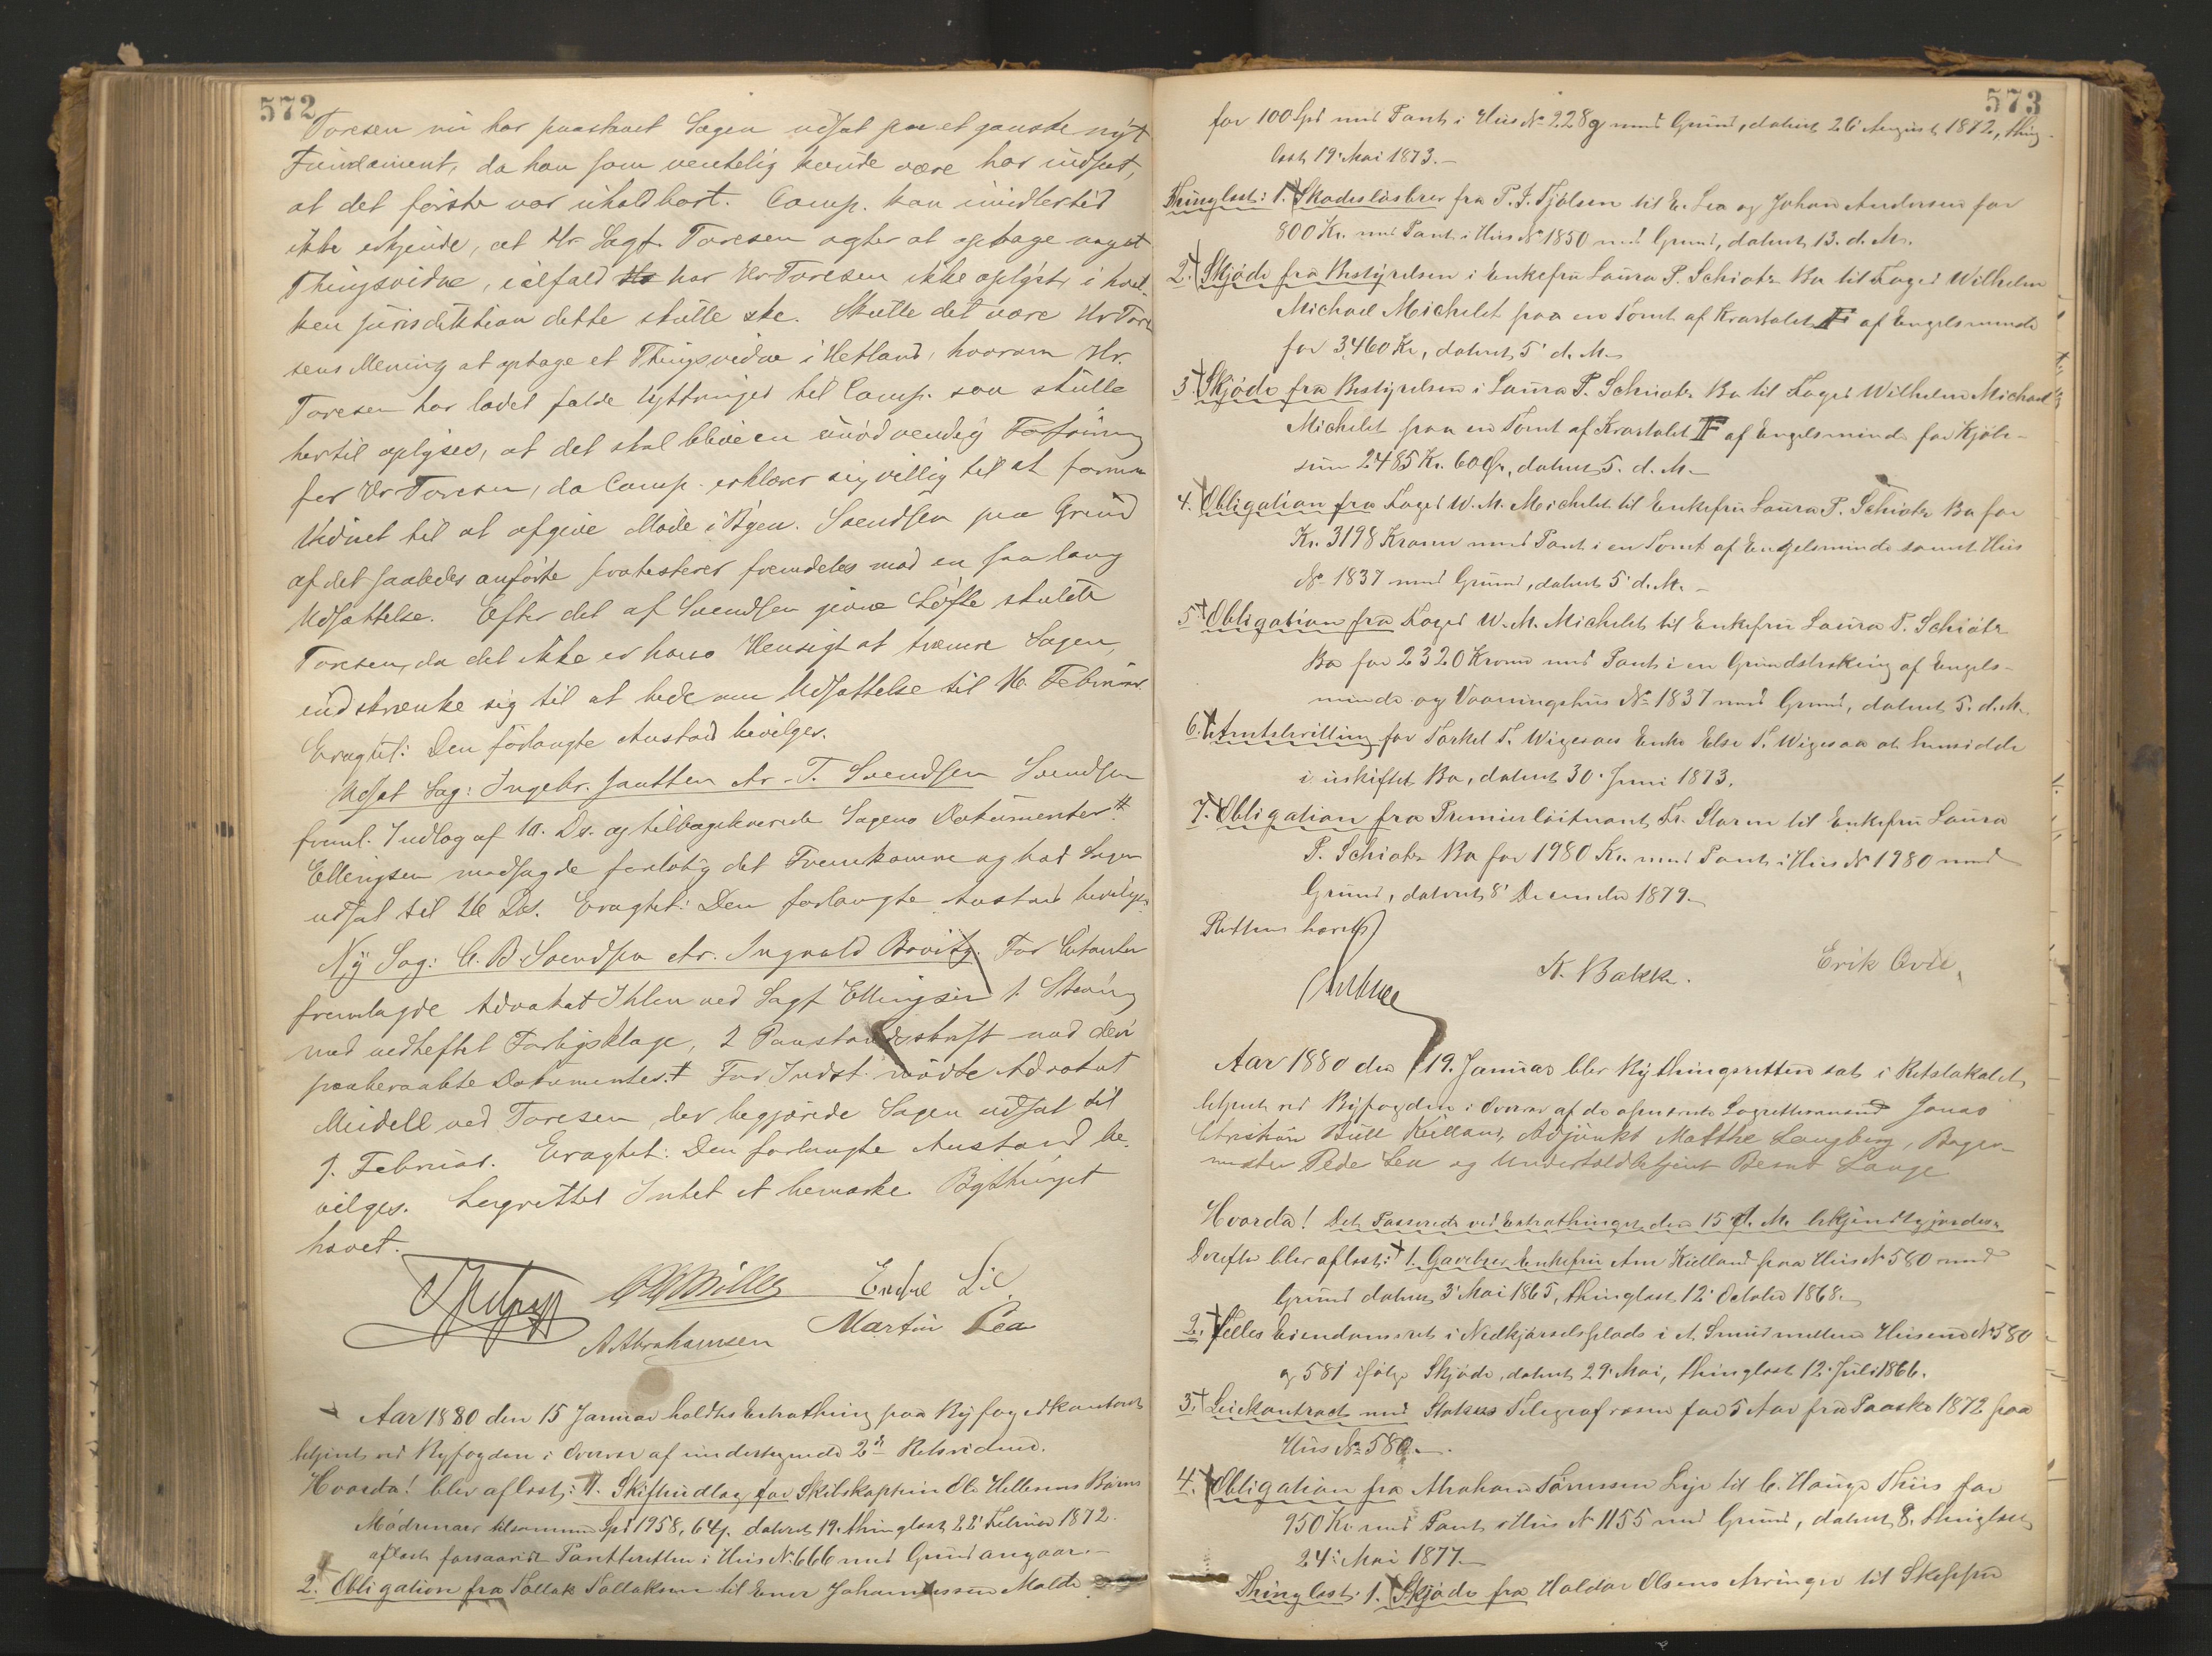 572
Toresen nu har paastaaet Sagen udsat paa et ganske nyt
Fundament, da han som ventelig kunde være har indseet,
at det første var uholdbart. Comp. kan imidlertid
ikke erkjende, at Hr Sagf. Toresen agter at optage noget
Thingsvidne, ialfald har Hr Toresen ikke oplyst, i hvil-
ken Jurisdiktion dette skulle ske. Skulle det være Hr Tore
sens Mening at optage et Thingsvidne i Hetland, hvorom Hr.
Toresen har ladet falde Yttringer til Comp. saa skulle
hertil oplyses, at det skal blive en unødvendig
for Hr Toresen, da Comp. erklærer sig villig til at formaa
Vidnet til at afgive Møde i Byen. Svendsen paa Grund
af det saaledes anførte protesterer fremdeles mod en saa lang
Udsættelse. Efter det af Svendsen givne Løfte skulde
Toresen, da det ikke er hans Hensigt at trænere Sagen,
indskrænke sig til at bede om Udsættelse til 16. Februar.
Eragtet: Den forlangte Anstand bevilges.
Udsat Sag: Ingebr. Hr. T. Svendsen Svendsen
freml. Indlæg af 10. Ds. og tilbageleverede Sagens Dokumenter.
Ellingsen modsagde foreløbig det Fremkomne og bad Sagen
udsat til 26 Ds. Eragtet: Den forlangte Anstand bevilges.
Ny Sag: C. B. Svendsen Hr. Ingvald Bovitz. For Citanten
fremlagde Advokat Ihlen ved Sagf Ellingsen 1. Stævning
med vedheftet Forligsklage, 2 Paastandsskrift med deri
paaberaabte Dokumenter. For Indst. mødte Advokat
Meidell ved Toresen, der begjærede Sagen udsat til
9. Februar. Eragtet: Den forlangte Anstand be-
vilges. Lagrettet Intet at bemærke. Bythinget
hævet.
Müller Endre Lie
A Abrahamsen Martin Lea
Aar 1880 den 15 Januar holdtes Extrathing paa Byfogedkontoret
betjent ved Byfogden i Overvær af undertegnede 2de Retsvidner.
Hvorda! blev aflæst: 1. Skifteudlæg for Skibskaptein Ole Hellesens Børns
Mødrenearv tilsammen Spd 1958, 64 ß. dateret 19. thinglæst 22' Februar 1872.
aflæst forsaavidt Panteretten i Hus No 666 med Grund angaar. —
2. Obligation fra Tollak Tollaksen til Ener Johannessen Molde
573
for 100 Spd med Pant i Hus No 228g med Grund, dateret 26' August 1872, thing-
læst 19' Mai 1873. —
Thinglæst: 1. Skadesløsbrev fra P. J. Tjølsen til E. Lea og Johan Andersen for
800 Kr. med Pant i Hus No 1850 med Grund, dateret 13. d. M.
2. Skjøde fra Bestyrelsen i Enkefru Laura P. Schiøtz Bo til Foged Wilhelm
Michael Michelet paa en Tomt af Kvartalet F af Engelsminde
for 3460 Kr, dateret 5' d. M.
3 Skjøde fra Bestyrelsen i Laura P. Schiøtz Bo til Foged Wilhelm Michael
Michelet paa en Tomt af Kvartalet F af Engelsminde for Kjøbe-
sum 2485 Kr. 60 Ør, dateret 5. d. M. —
4. Obligation fra Foged W. M. Michelet til Enkefru Laura P. Schiøtz Bo for
Kr. 3198 Kroner med Pant i en Tomt af Engelsminde samt Hus
No 1837 med Grund, dateret 5' d. M. —
5 Obligation fra Foged W. M. Michelet til Enkefru Laura P. Schiøtz
Bo for 2320 Kroner med Pant i en Grundstrækning af Engels-
minde og Vaaningshus No 1837 med Grund, dateret 5. d. M.
6. Amtsbevilling for Torkel T. Wigesaas Enke Else T. Wigesaa at hensidde
i uskiftet Bo, dateret 30. Juni 1873.
7. Obligation fra Premierløitnant Fr. Storm til Enkefru Laura
P. Schiøtz Bo for 1980 Kr. med Pant i Hus No 1980 med
Grund, dateret 8' December 1879.
Retten hævet
K. Bakke. Erik Øvie
Aar 1880 den 19. Januar blev Bythingsretten sat i Retslokalet,
betjent ved Byfogden i Overvær af de opnævnte Lagrettesmænd Jonas
Christian Bull Kielland, Adjunkt Matthe Langberg, Bager-
mester Peder Lea og Undertoldbetjent Bernt Lange
Hvorda! Det Passerede ved Extrathinget den 15 d. M. bekjendtgjordes.
Derefter blev aflæst: 1. Gavebrev Enkefru Ane Kielland paa Hus No 580 med
Grund dateret 3' Mai 1865, thinglæst 12' October 1868.
2. Fælles Eiendomsret i Nedkjørselsplads i et Smug mellem Husene No 580
og 581 ifølge Skjøde, dateret 29. Mai, thinglæst 12. Juli 1866.
3. Leiekontract med Statens Telegrafvæsen for 5 Aar fra Paaske 1872 paa
Hus No 580. —
4. Obligation fra Abraham Tønnessen Lye til C. Hauge Thiis for
950 Kr med Pant i Hus No 1155 med Grund, dateret 8. thinglæst
24' Mai 1877. —
Thinglæst: 1. Skjøde fra Haldor Olsens Arvinger til Skipper